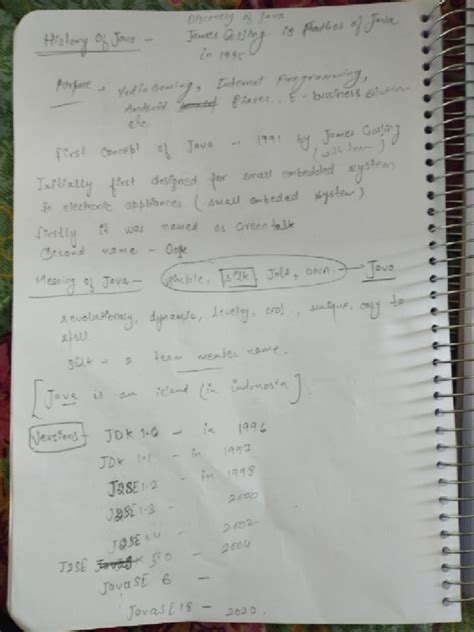 Discovery of Java
History Of Java - James Gosling is Father of Java
in 1995
Purpose → Vedio Gaming, Internet Programming,
Android Biases, E-business Solution
etc
First Concept of Java - 1991 by James Gosling
(with team)
Initially first designed for small embedded system
in electronic appliances (small embeded system)
firstly it was named as Greentalk
Second name - Oak
Meaning of Java - Silk, Jolt, DNA → Java
revolutionary, dynamic, lively, cool, unique, easy to
spell
Silk - a team name.
[Java is an island (in indonesia)]
Versions - JDK 1.0 - in 1996
JDK 1.1 - in 1997
J2SE 1.2 - in 1998
J2SE 1.3 - 2000
J2SE 1.4 - 2002
J2SE 5.0 - 2004
JavaSE 6 -
JavaSE 18 - 2022.